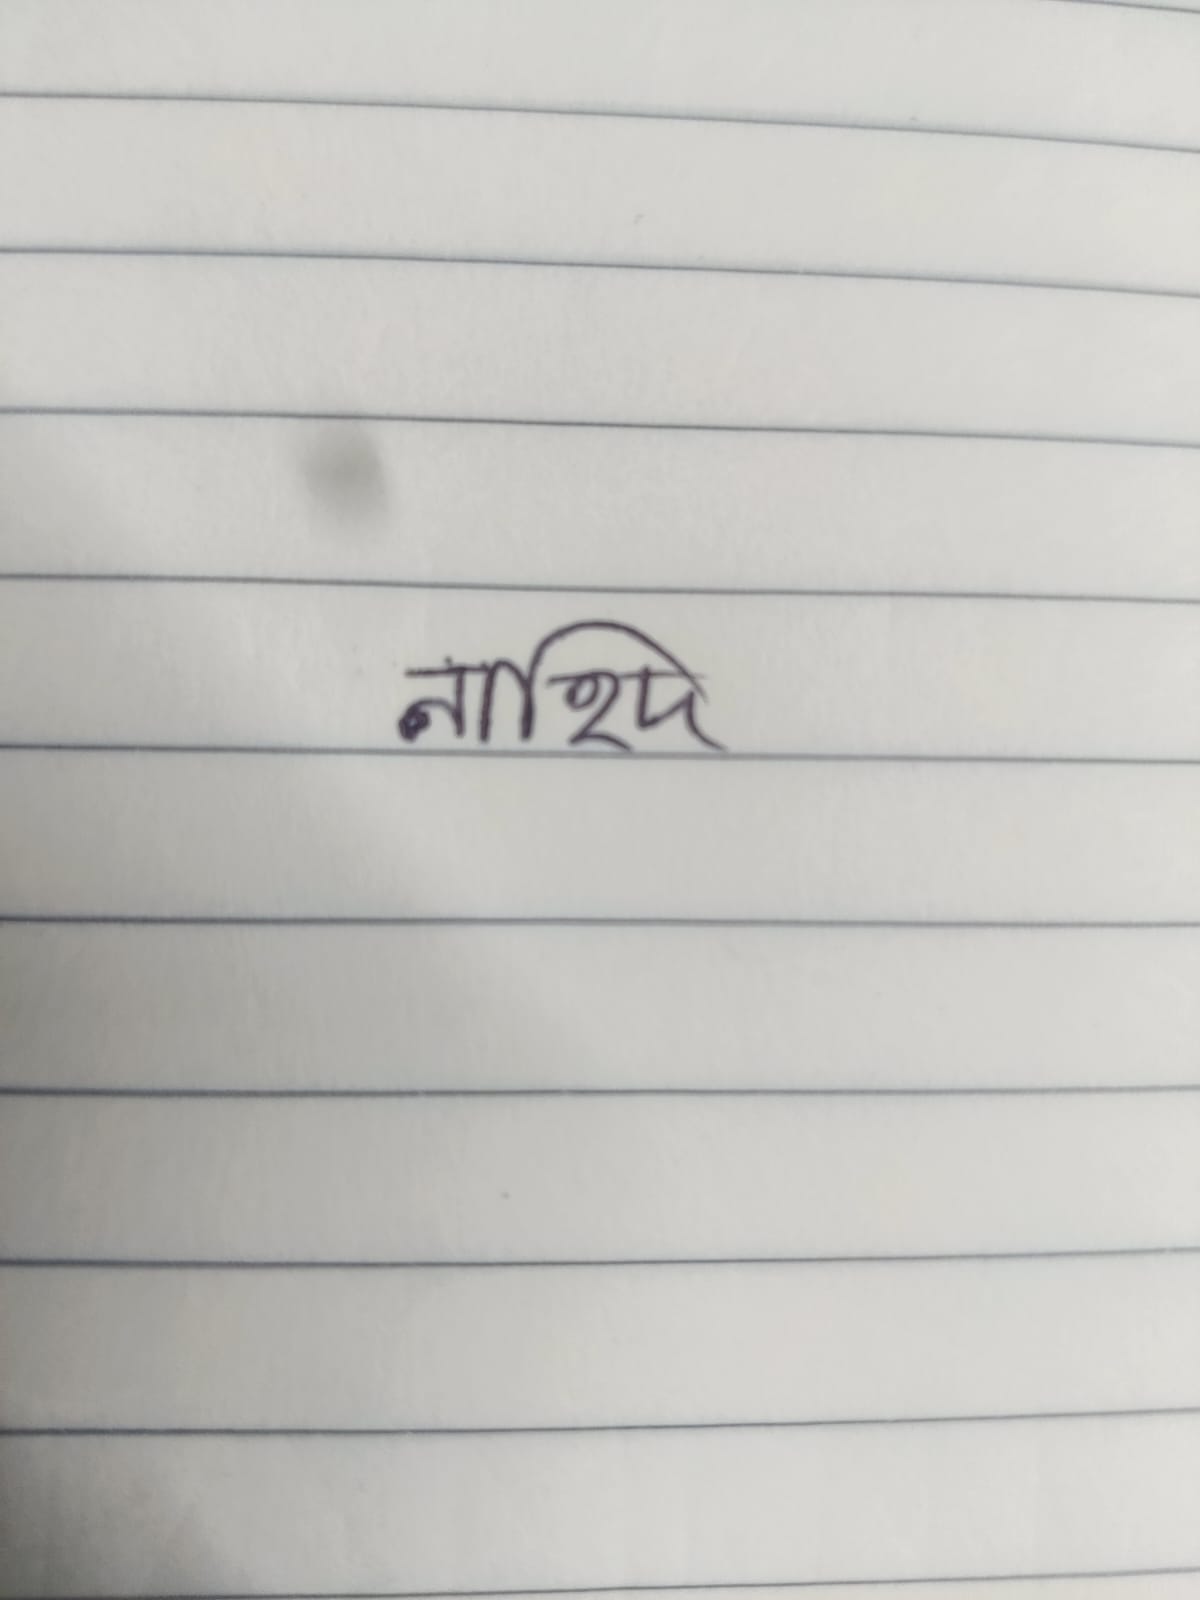 নাহিদ